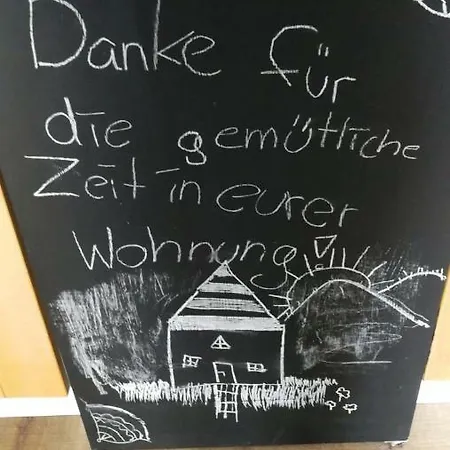 Danke für
die gemütliche
Zeit in eurer
Wohnung!